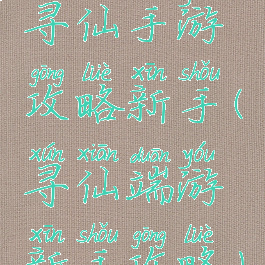 寻仙手游
gōng lüè xīn shǒu
攻略新手(
xún xiān duān yóu
寻仙端游
xīn shǒu gōng lüè
新手攻略)